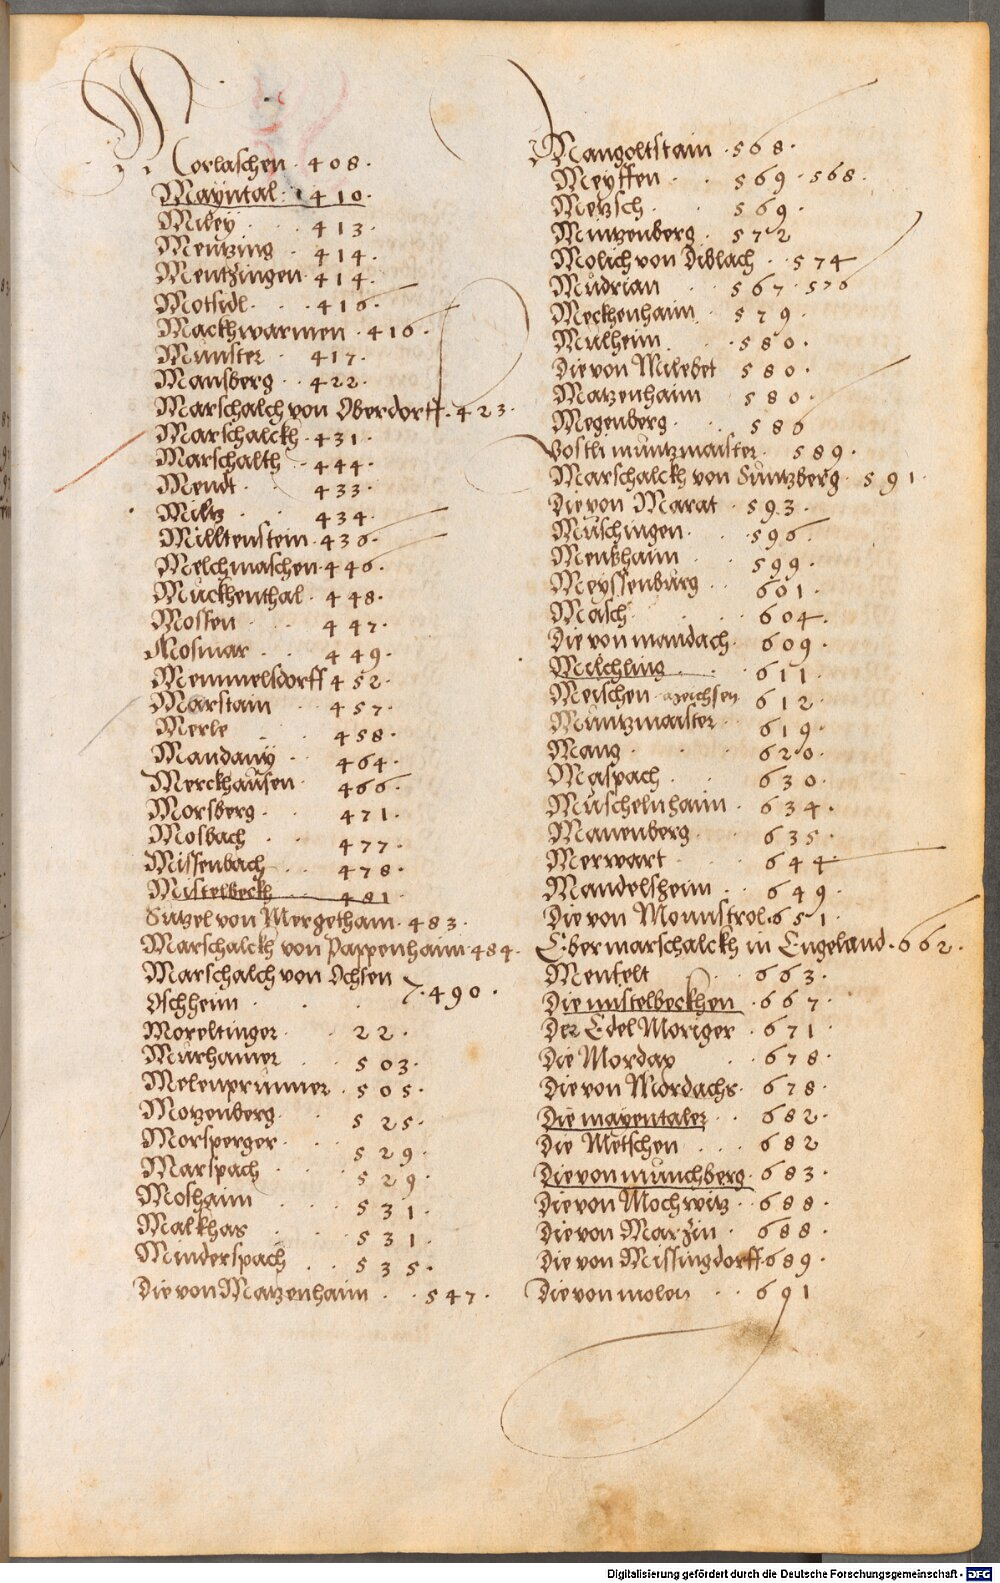 Morlaschen · 408 ·
Mayntal · 410 ·
Miley · 413 ·
Meutzing · 414 ·
Mentzingen · 414 ·
Motsidl · 416 ·
Mackhwarmen · 416 ·
Münster · 417 ·
Mansberg · 422 ·
Marschalch von Oberdorff · 423 ·
Marschalckh · 431 ·
Marschalth · 444 ·
Mendt · 433 ·
Miltz · 434 ·
Milltenstein · 436 ·
Melchmaschen · 446 ·
Muckhenthal · 448 ·
Mossen · 447 ·
Mosmar · 449 ·
Memmelsdorff 452 ·
Marstain · 457 ·
Merle · 458 ·
Mandany · 464 ·
Merckhausen · 466 ·
Morsberg · 471 ·
Mosbach · 477 ·
Missenbach · 478 ·
Mistelbeckh · 481 ·
Sützel von Mergetham · 483 ·
Marschalckh von Pappenhaim · 484 ·
Marschalch von Ochsen
Oschheim · 490 ·
Moreltinger · 22 ·
Murhamer · 503 ·
Melenprunner · 505 ·
Motzenberg · 525 ·
Morsperger · 529 ·
Marspach · 529 ·
Moshaim · 531 ·
Malkhas · 531 ·
Minderspach · 535 ·
Die von Matzenhaim · 547 ·
Mangoltstain · 568 ·
Meyssen · 569 · 568 ·
Metzsch · 569 ·
Mintzenberg · 572
Molich von Diblach · 574
Mudrian · 567 · 576
Meckhenhaim · 579 ·
Mulheim · 580 ·
Die von Milebet 580 ·
Matzenhaim 580 ·
Megenberg · 586
Vostli müntzmaister · 589 ·
Marschalckh von Suntzberg · 591 ·
Die von Marat · 593 ·
Muschingen · 596 ·
Menßhaim · 599 ·
Meyssenburg · 601 ·
Masch · 604 ·
Die von mandach · 609 ·
Milchling · 611 ·
Meischen · meichsen 612 ·
Müntzmaister · 619 ·
Mang · 620 ·
Maspach · 630 ·
Muschelnhaim · 634 ·
Manenberg · 635 ·
Merwart · 644
Mandelsheim · 649 ·
Die von Monnstrol · 651 ·
Ebermarschalckh in Engeland · 662 ·
Mentelt · 663 ·
Die mistelbeckhen · 667 ·
Der Edel Moriger · 671 ·
Die Mordax · 678 ·
Die von Mordachs · 678 ·
Die mayentaler · 682 ·
Die Metschen · 682
Die von munchberg · 683 ·
Die von Mochwitz · 688 ·
Die von Marzin · 688 ·
Die von Missingdorff · 689 ·
Die von molen · 691
Digitalisierung gefördert durch die Deutsche Forschungsgemeinschaft - DFG